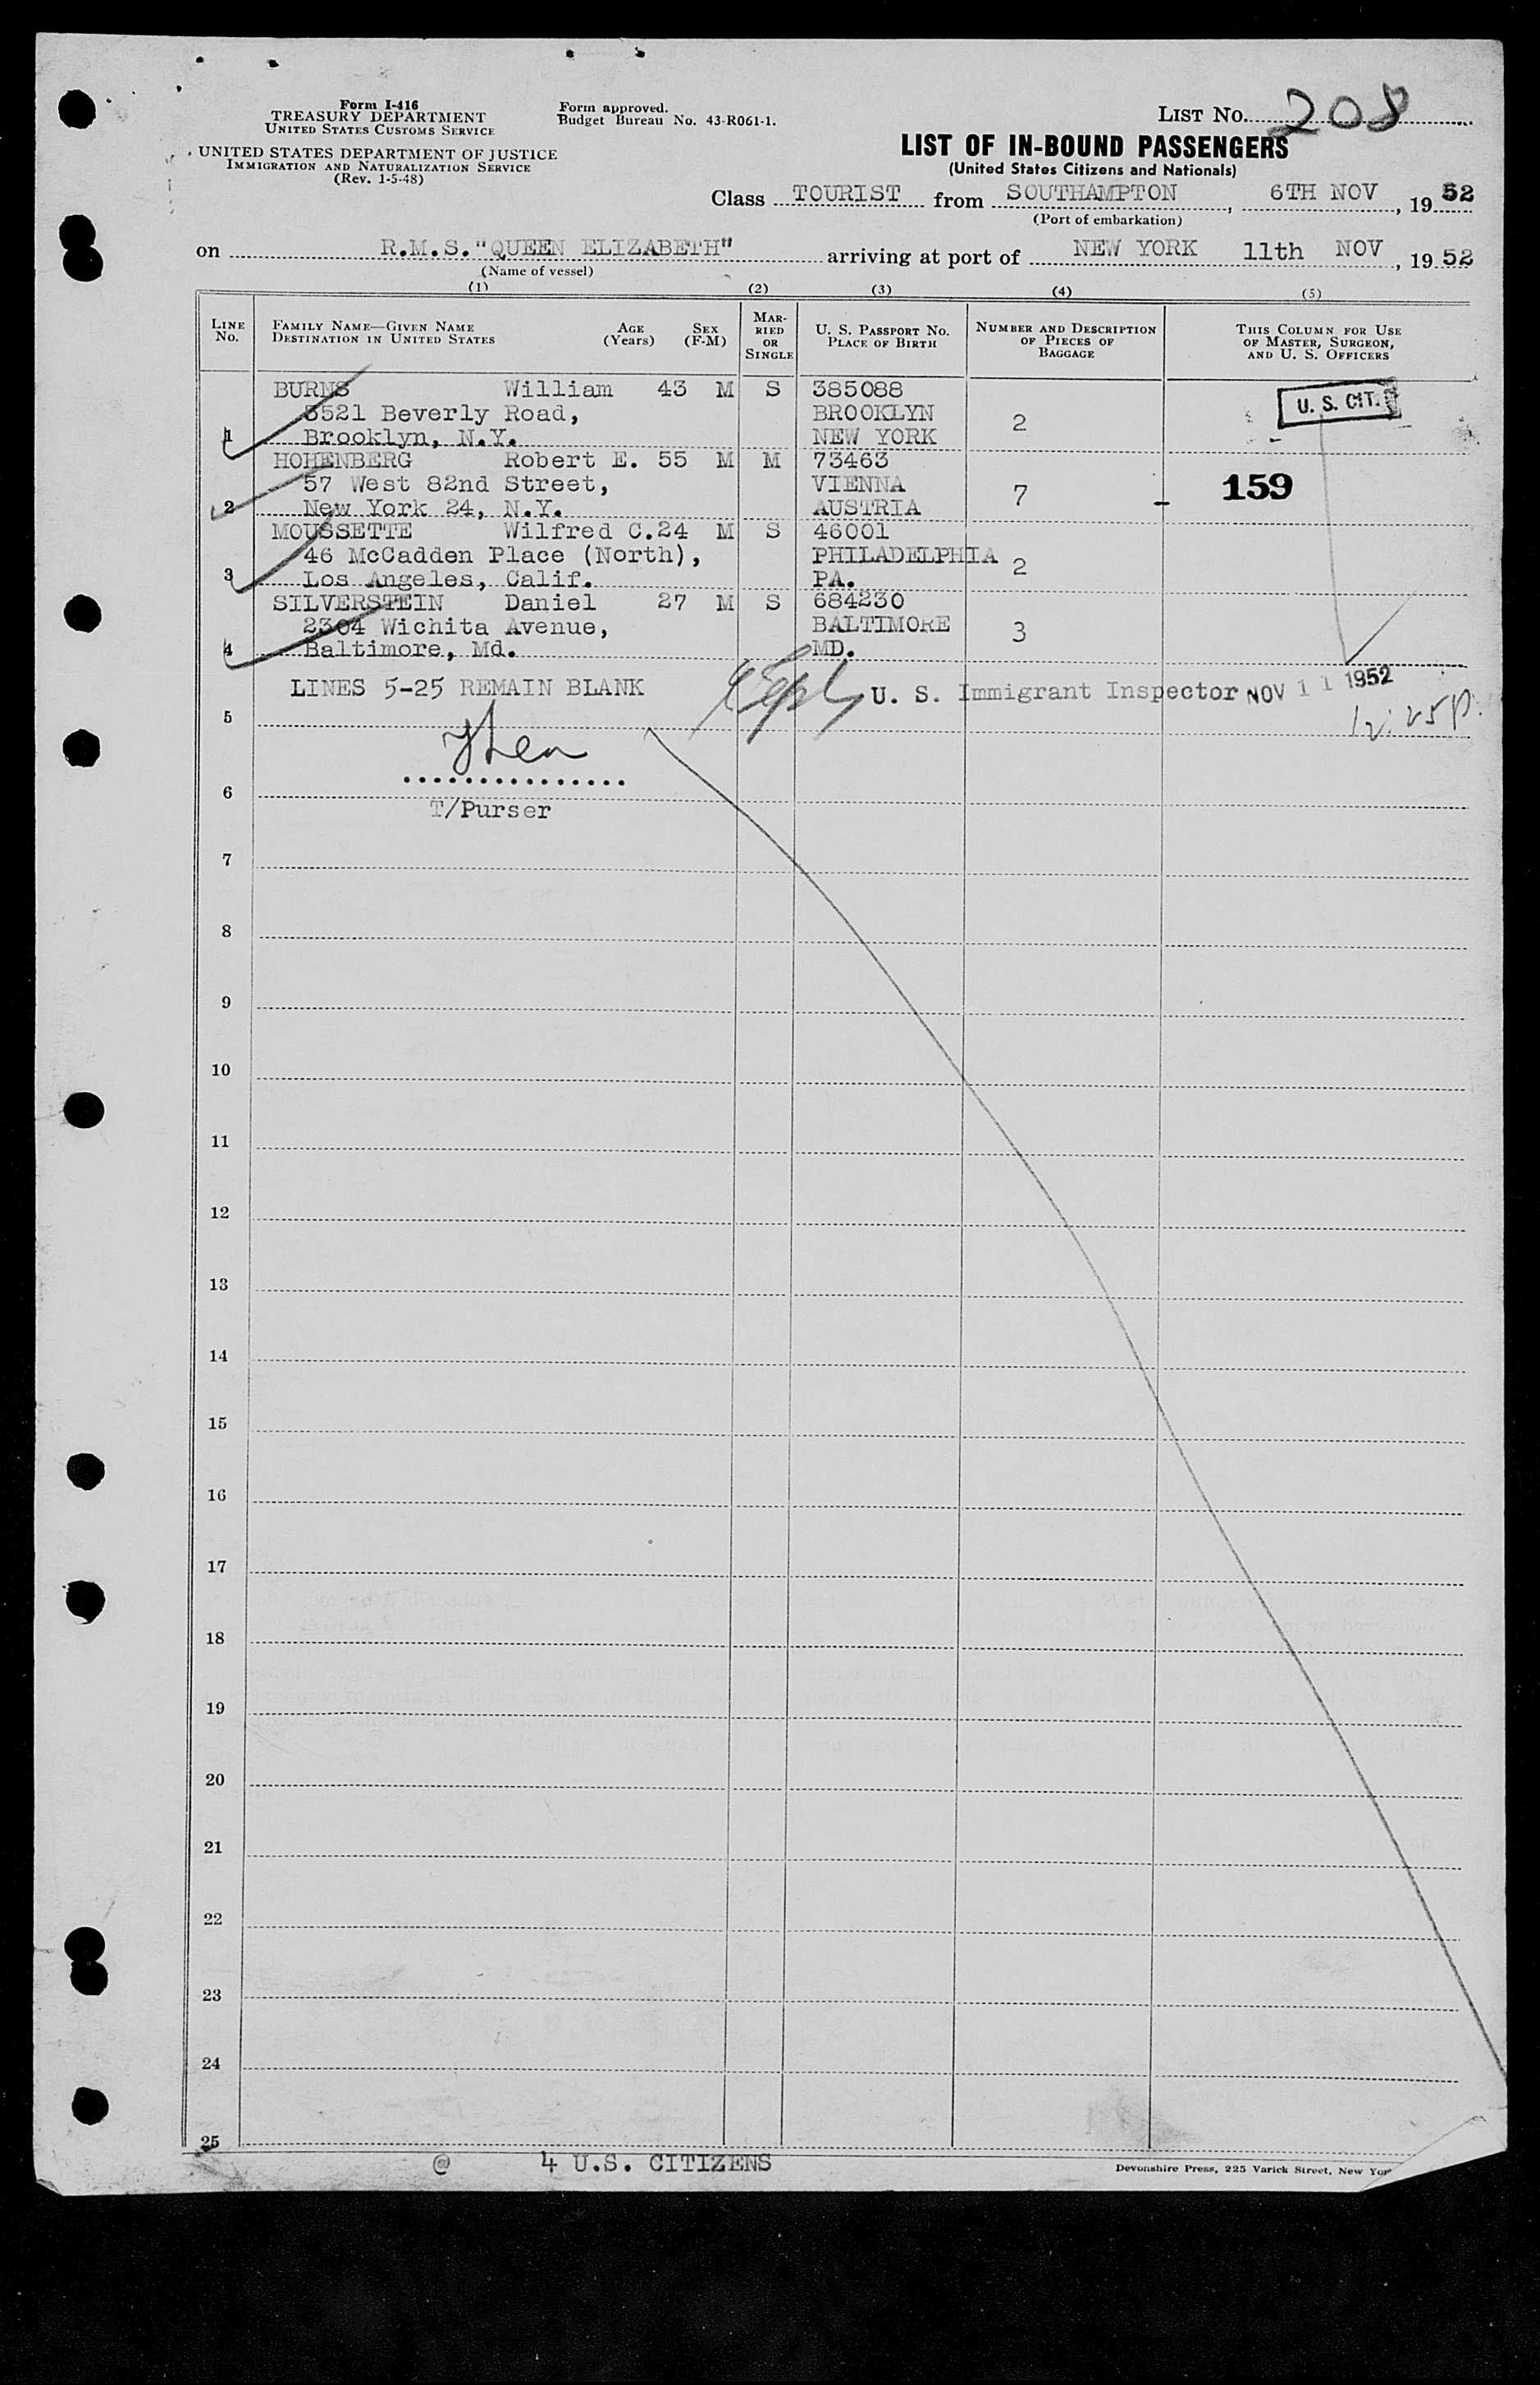 Form I-416
TREASURY DEPARTMENT
UNITED STATES CUSTOMS SERVICE
UNITED STATES DEPARTMENT OF JUSTICE
IMMIGRATION AND NATURALIZATION SERVICE
(Rev. 1-5-48)
Form approved.
Budget Bureau No. 43-R061-1.
LIST No. 208
LIST OF IN-BOUND PASSENGERS
(United States Citizens and Nationals)
Class TOURIST from SOUTHAMPTON, 6TH NOV, 19 52
(Port of embarkation)
on R.M.S. "QUEEN ELIZABETH" arriving at port of NEW YORK 11th NOV, 19 52
(Name of vessel)
(1) (2) (3) (4) (5)
LINE No. FAMILY NAME—GIVEN NAME DESTINATION IN UNITED STATES AGE (Years) SEX (F-M) MARRIED OR SINGLE U. S. PASSPORT NO. PLACE OF BIRTH NUMBER AND DESCRIPTION OF PIECES OF BAGGAGE THIS COLUMN FOR USE OF MASTER, SURGEON, AND U. S. OFFICERS
BURNS William 43 M S 385088
3521 Beverly Road, BROOKLYN 2 U. S. CIT.
1 Brooklyn, N.Y. NEW YORK
HOHENBERG Robert E. 55 M M 73463
57 West 82nd Street, VIENNA 7 - 159
2 New York 24, N.Y. AUSTRIA
MOUSSETTE Wilfred C. 24 M S 46001
46 McCadden Place (North), PHILADELPHIA 2
3 Los Angeles, Calif. PA.
SILVERSTEIN Daniel 27 M S 684230
2304 Wichita Avenue, BALTIMORE 3
4 Baltimore, Md. MD.
LINES 5-25 REMAIN BLANK U. S. Immigrant Inspector NOV 11 1952
12:25P.
5
6
T/Purser
7
8
9
10
11
12
13
14
15
16
17
18
19
20
21
22
23
24
25
@ 4 U.S. CITIZENS
Devonshire Press, 225 Varick Street, New Yor